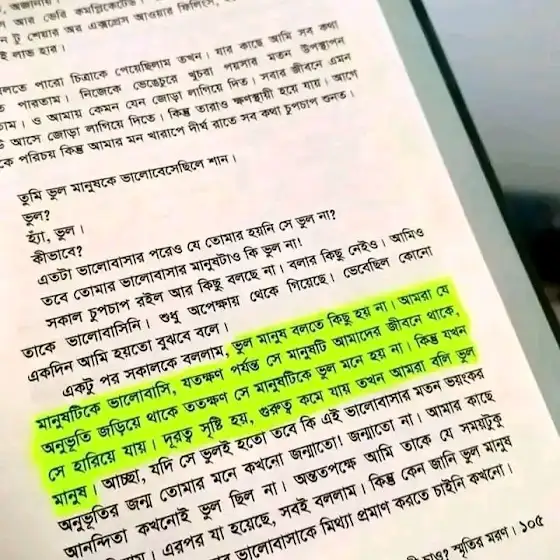 আর ভেরি কমপ্লিকেটেড।
টু শেয়ার অর এক্সপ্রেস আওয়ার ফিলিংস,
লাভ হার।
বলতে পারো চিত্রাকে পেয়েছিলাম তখন। যার কাছে আমি সব কথা
পারতাম। নিজেকে ভেঙেচুরে খুচরা পয়সার মতন উপস্থাপন
ও আমায় কেমন যেন জোড়া লাগিয়ে দিত। সবার জীবনে এমন
আসে জোড়া লাগিয়ে দিতে। কিন্তু তারাও ক্ষণস্থায়ী হয়ে যায়। আগে
পরিচয় কিন্তু আমার মন খারাপে দীর্ঘ রাতে সব কথা চুপচাপ শুনত।
তুমি ভুল মানুষকে ভালোবেসেছিলে শান।
ভুল?
হ্যাঁ, ভুল।
কীভাবে?
এতটা ভালোবাসার পরেও যে তোমার হয়নি সে ভুল না?
তবে তোমার ভালোবাসার মানুষটাও কি ভুল না!
সকাল চুপচাপ রইল আর কিছু বলছে না। বলার কিছু নেইও। আমিও
তাকে ভালোবাসিনি। শুধু অপেক্ষায় থেকে গিয়েছে। ভেবেছিল কোনো
একদিন আমি হয়তো বুঝবে বলে।
একটু পর সকালকে বললাম, ভুল মানুষ বলতে কিছু হয় না। আমরা যে
মানুষটিকে ভালোবাসি, যতক্ষণ পর্যন্ত সে মানুষটি আমাদের জীবনে থাকে,
অনুভূতি জড়িয়ে থাকে ততক্ষণ সে মানুষটিকে ভুল মনে হয় না। কিন্তু যখন
সে হারিয়ে যায়। দূরত্ব সৃষ্টি হয়, গুরুত্ব কমে যায় তখন আমরা বলি ভুল
মানুষ। আচ্ছা, যদি সে ভুলই হতো তবে কি এই ভালোবাসার মতন ভয়ংকর
অনুভূতির জন্ম তোমার মনে কখনো জন্মাতো! জন্মাতো না। আমার কাছে
আনন্দিতা কখনোই ভুল ছিল না। অন্ততপক্ষে আমি তাকে যে সময়টুকু
এরপর যা হয়েছে, সবই বললাম। কিন্তু কেন জানি ভুল মানুষ
ভালোবাসাকে মিথ্যা প্রমাণ করতে চাইনি কখনো।
স্মৃতির মরণ। ১০৫